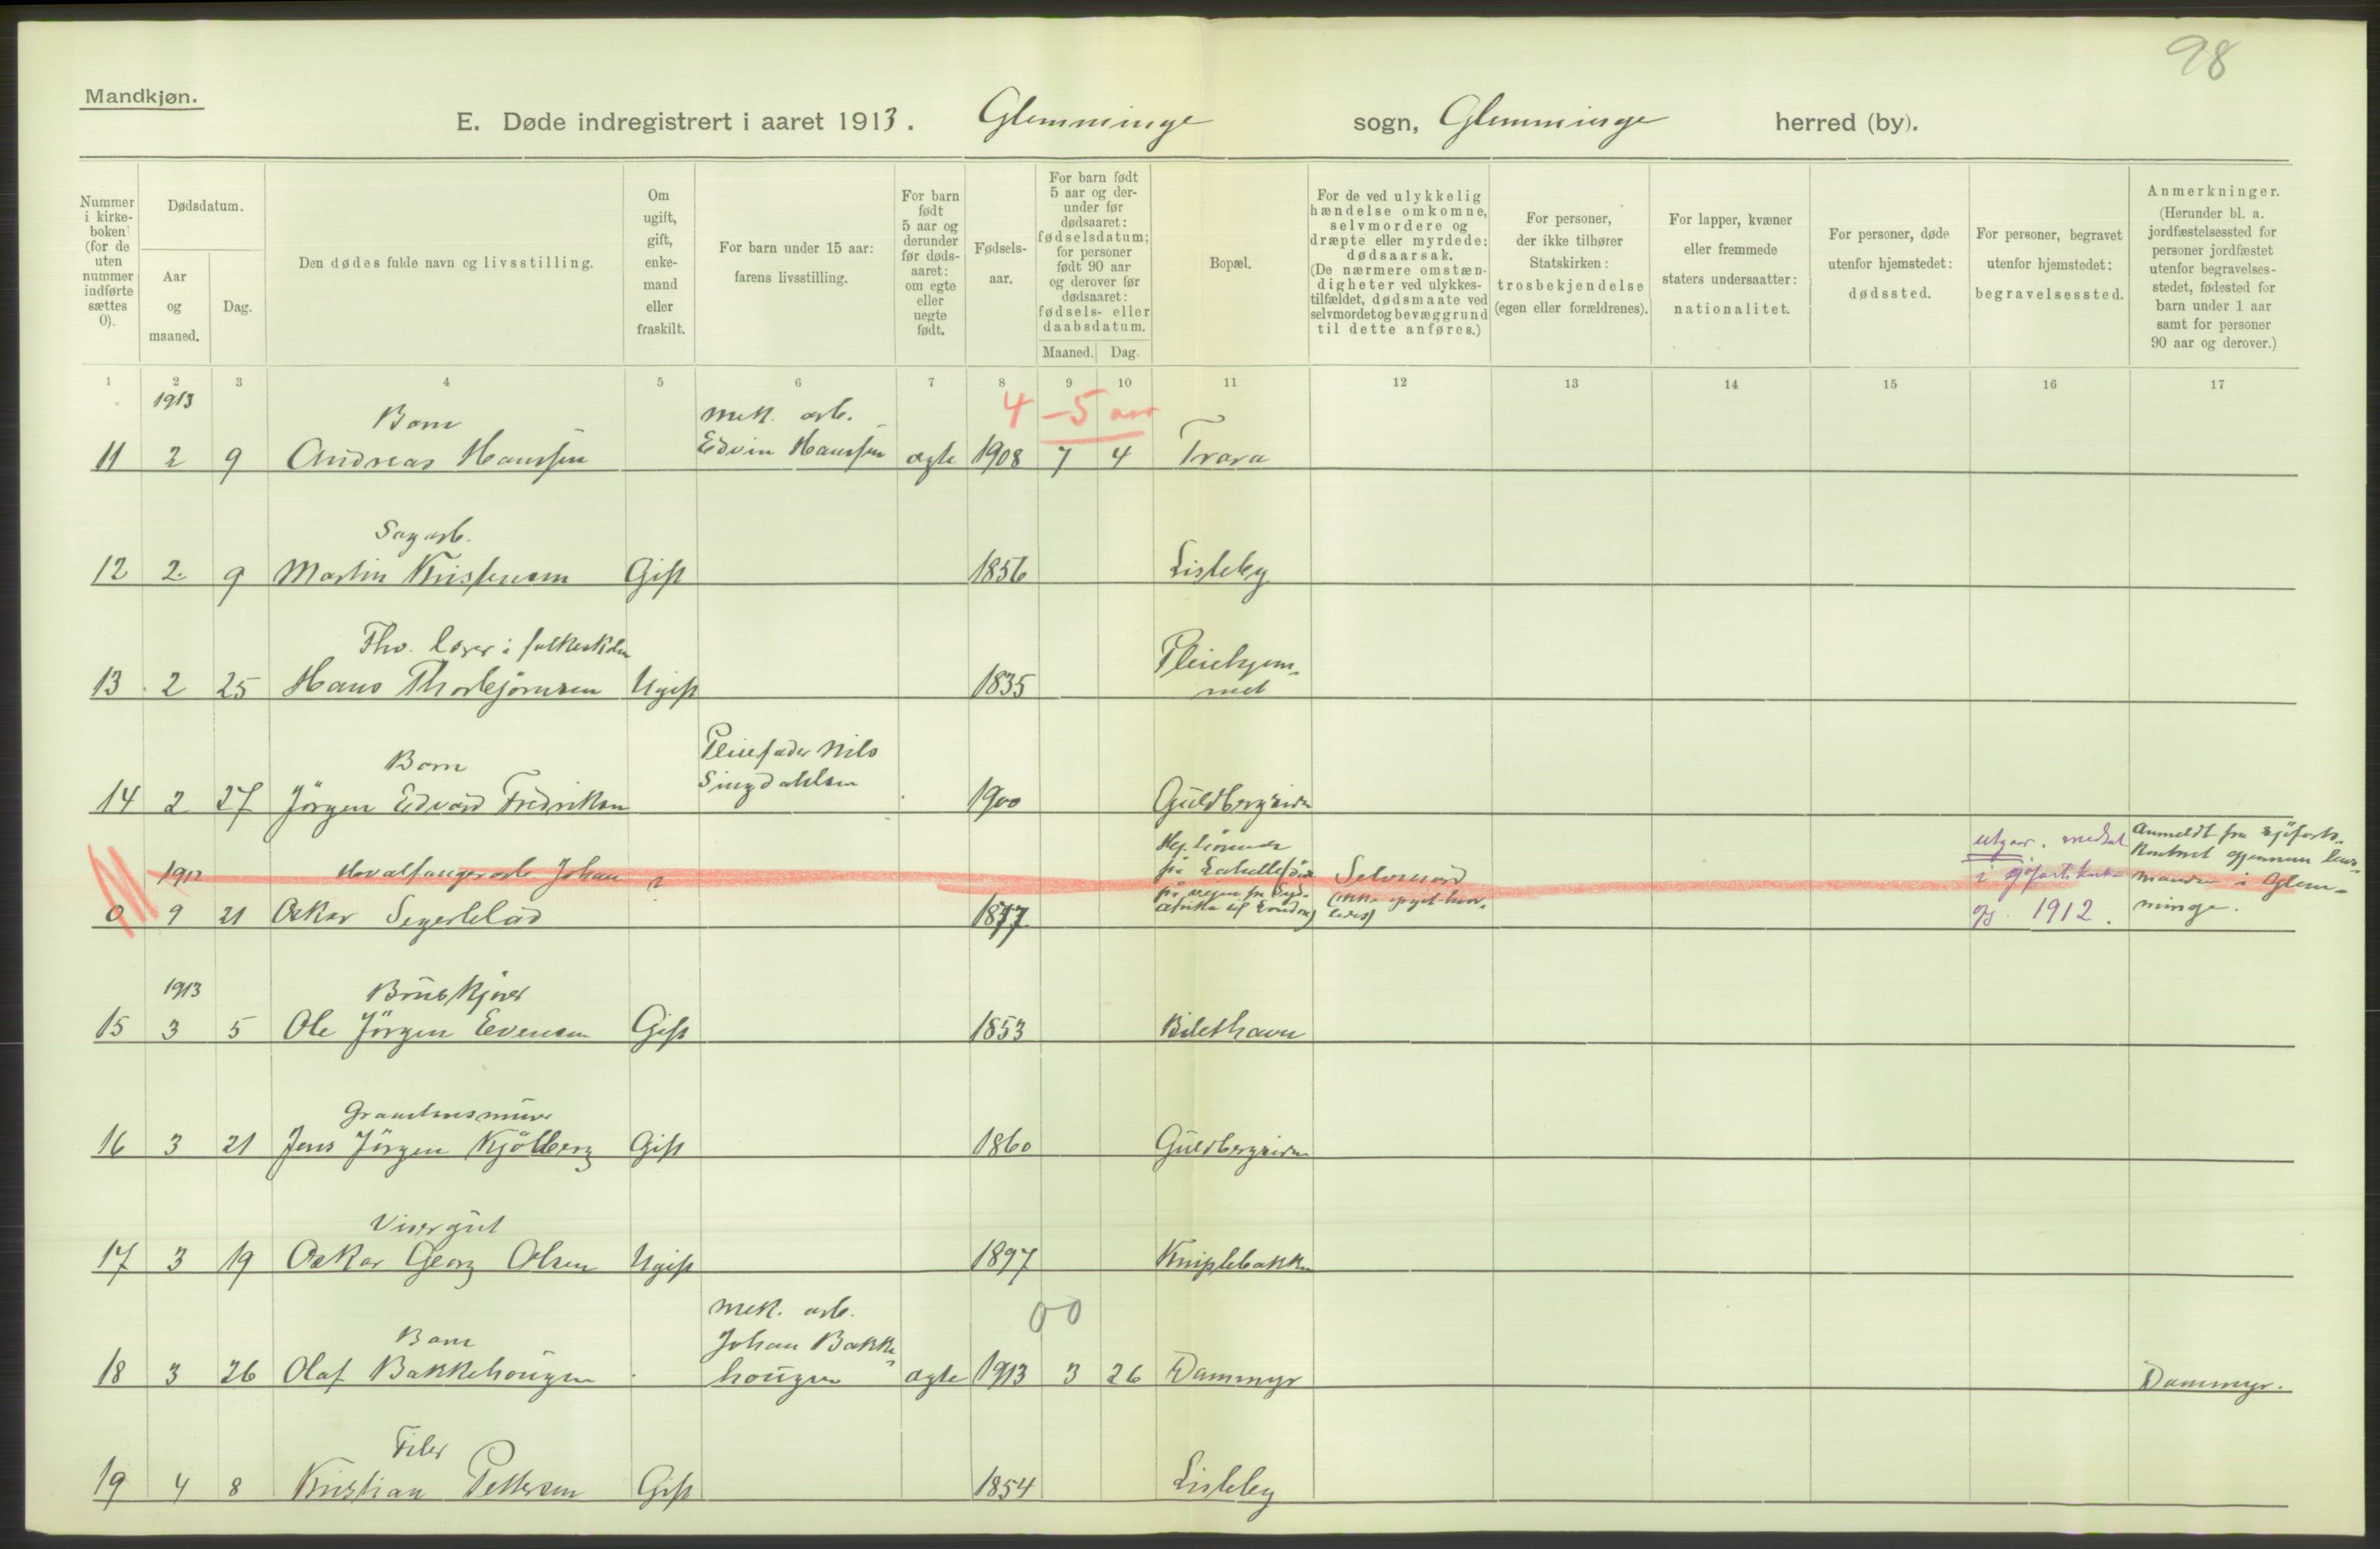 98
Mandkjøn.
E. Døde indregistrert i aaret 1913. Glemminge sogn, Glemminge herred (by).
Nummer i kirke-boken (for de uten nummer indførte sættes 0).
Dødsdatum.
Aar og maaned.
Dag.
Den dødes fulde navn og livsstilling.
Om ugift, gift, enke-mand eller fraskilt.
For barn under 15 aar: farens livsstilling.
For barn født 5 aar og derunder før døds-aaret: om egte eller uegte født.
Fødsels-aar.
For barn født 5 aar og der-under før dødsaaret: fødselsdatum; for personer født 90 aar og derover før dødsaaret: fødsels- eller daabsdatum.
Maaned. Dag.
Bopæl.
For de ved ulykkelig hændelse omkomne, selvmordere og dræpte eller myrdede: dødsaarsak. (De nærmere omstæn-digheter ved ulykkes-tilfældet, dødsmaate ved selvmordet og bevæggrund til dette anføres.)
For personer, der ikke tilhører Statskirken: trosbekjendelse (egen eller forældrenes).
For lapper, kvæner eller fremmede staters undersaatter: nationalitet.
For personer, døde utenfor hjemstedet: dødssted.
For personer, begravet utenfor hjemstedet: begravelsessted.
Anmerkninger. (Herunder bl. a. jordfæstelsessted for personer jordfæstet utenfor begravelses-stedet, fødested for barn under 1 aar samt for personer 90 aar og derover.)
1 2 3 4 5 6 7 8 9 10 11 12 13 14 15 16 17
1913 Barn mek. arb. 4-5 aar
11 2 9 Andreas Hanssen Edvin Hanssen ægte 1908 7 4 Trara
Sagarb.
12 2 9 Martin Kristensen Gift 1856 Lisleby
Fhv. lærer i folkeskolen Pleiehjem-
13 2 25 Hans Thorbjørnsen Ugift 1835 met
Barn Pleiefader Nils
14 2 27 Jörgen Edvard Fredriksen Singdahlsen 1900 Guldbergsiden
1912 Hvalfangerarb. Johan ? Selvmord
0 9 21 Oskar Segerblad 1877
på veien fra Syd-
afrika til London)
utgaar. medtat
1912.
Anmeldt fra sjöfarts-
kontoret gjennem lens-
manden i Glem-
minge.
1913 Bruskjører
15 3 5 Ole Jörgen Evensen Gift 1853 Bilethavn
Granitmurer
16 3 21 Jens Jörgen Kjölberg Gift 1860 Guldbergsiden
Visergut
17 3 19 Oskar Georg Olsen Ugift 1897 Kniplebakken
mek. arb. 00
Barn Johan Bakke-
18 3 26 Olaf Bakkehougen hougen ægte 1913 3 26 Dammyr Dammyr.
Filer
19 4 8 Kristian Pettersen Gift 1854 Lisleby